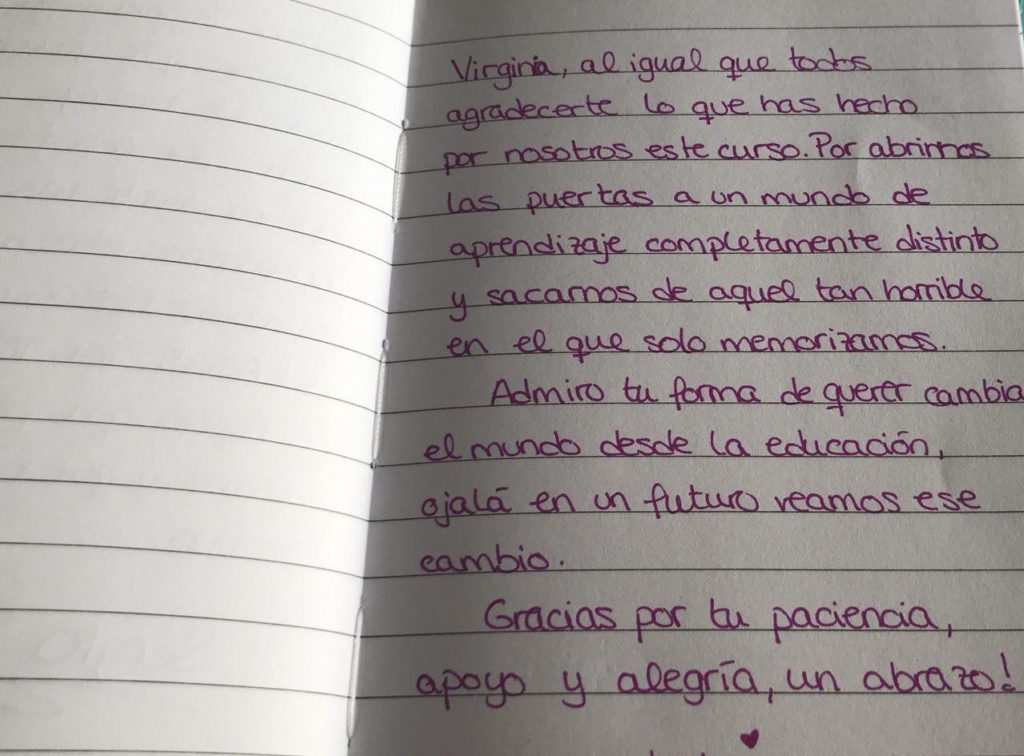 Virginia, al igual que todos
agradecerte lo que has hecho
por nosotros este curso. Por abrirnos
las puertas a un mundo de
aprendizaje completamente distinto
y sacarnos de aquel tan horrible
en el que solo memorizamos.
Admiro tu forma de querer cambia
el mundo desde la educación,
ojalá en un futuro veamos ese
cambio.
Gracias por tu paciencia,
apoyo y alegría, un abrazo!